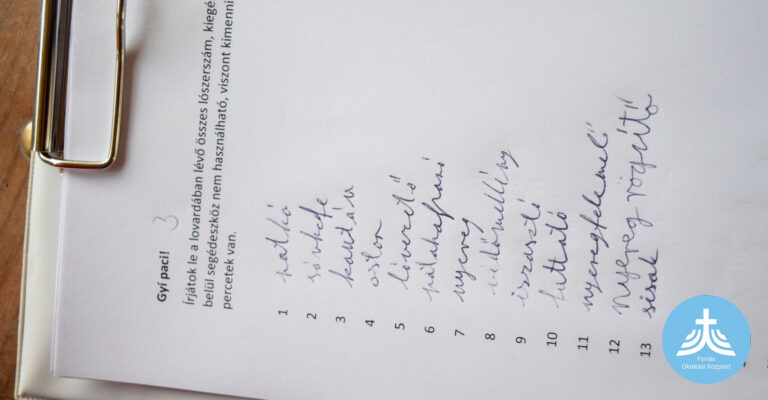 Gyí paci! 3
Írjátok le a lovardában lévő összes lószerszám, kiegé
belül segédeszköz nem használható, viszont kimenni
percetek van.
1 patkó
2 sávkefe
3 kantár
4 ostor
5 lóvezető
6 patakaparó
7 nyereg
8 védőmellény
9 izzasztó
10 futtató
11 nyeregfelemelő
12 Nyereg rögzítő
13 sisak
Forrás
Oktatási Központ